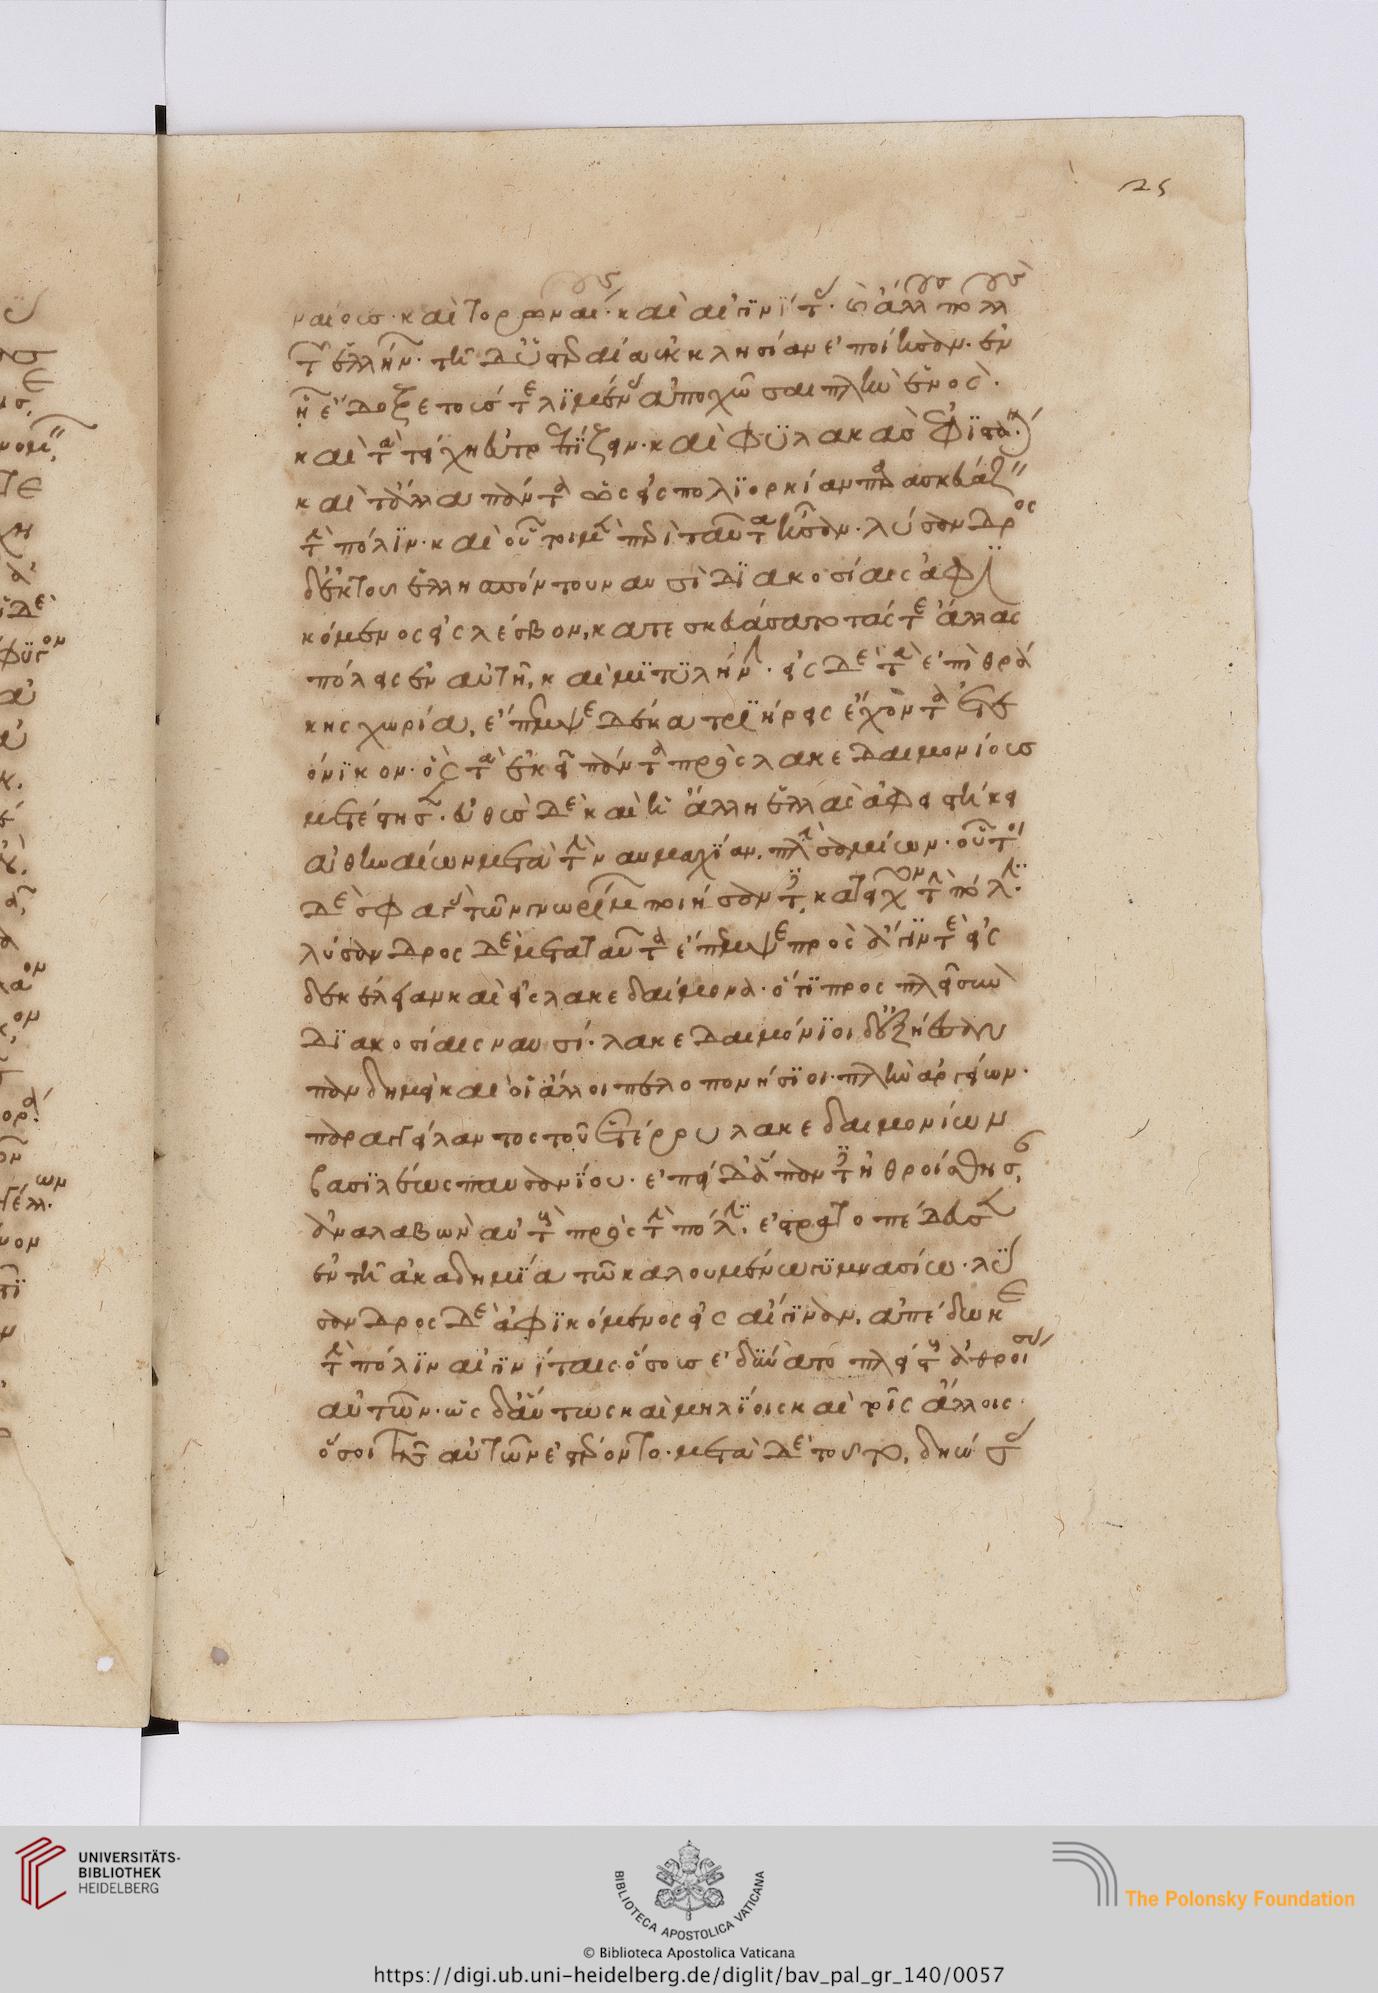 ναίους· καὶ τορωναίους· καὶ αἰγινήτας· καὶ ἄλλους πολλοὺς
τῶν ἑλλήνων. τῆ δ' ὑστεραία ἐκκλησίαν ἐποίησαν· ἐν
ἧ ἔδοξε τούς τε λιμένας ἀποχῶσαι πλὴν ἑνὸς·
καὶ τὰ τείχη εὐτρεπίζειν· καὶ φυλακὰς ἐφιστάναι·
καὶ τἄλλα πάντα ὡς εἰς πολιορκίαν παρασκευάζειν
τὴν πόλιν· καὶ οὗτοι μὲν περὶ ταῦτα ἦσαν· λύσανδρος
δ' ἐκ τοῦ ἑλλησπόντου ναυσὶ διακοσίαις ἀφι
κόμενος εἰς λέσβον, κατεσκευάσατο τάς τε ἄλλας
πόλεις ἐν αὐτῆ, καὶ μιτυλήνην· εἰς δὲ τὰ ἐπὶ θρά
κης χωρία, ἔπεμψε δέκα τριήρεις ἔχοντα ἐτε
όνικον· ὃς τὰ ἐκεῖ πάντα πρὸς λακεδαιμονίους
μετέστησεν· εὐθὺς δὲ καὶ ἡ ἄλλη ἑλλὰς ἀφειστήκει
ἀθηναίων μετὰ τὴν ναυμαχίαν, πλὴν σαμίων· οὗτοι
δὲ σφαγὰς τῶν γνωρίμων ποιήσαντες, κατεῖχον τὴν πόλιν·
λύσανδρος δὲ μετὰ ταῦτα ἔπεμψε πρὸς ἄγιν τε εἰς
δεκέλειαν καὶ εἰς λακεδαίμονα· ὅτι προσπλεῖ σὺν
διακοσίαις ναυσί· λακεδαιμόνιοι δ' ἐξήεσαν
πανδημεὶ καὶ οἱ ἄλλοι πελοπονήσιοι· πλὴν ἀργείων·
παραγγείλαντος τοῦ ἑτέρου λακεδαιμονίων
βασιλέως παυσανίου· ἐπεὶ δ' ἅπαντες ἠθροίσθησαν,
ἀναλαβὼν αὐτοὺς πρὸς τὴν πόλιν, ἐστρατοπέδευσεν
ἐν τῆ ἀκαδημία τῶ καλουμένω γυμνασίω· λύ
σανδρος δὲ ἀφικόμενος εἰς αἴγιναν, ἀπέδωκε
τὴν πόλιν αἰγινήταις· ὅσους ἐδύνατο πλείστους ἀθροίσας
αὐτῶν· ὡς δ' αὔτως καὶ μηλίοις καὶ τοῖς ἄλλοις
ὅσοι τῆς αὐτῶν ἐστέροντο· μετὰ δὲ τοῦτο, δηώσας
UNIVERSITÄTS-
BIBLIOTHEK
HEIDELBERG
BIBLIOTECA APOSTOLICA VATICANA
© Biblioteca Apostolica Vaticana
The Polonsky Foundation
https://digi.ub.uni-heidelberg.de/diglit/bav_pal_gr_140/0057